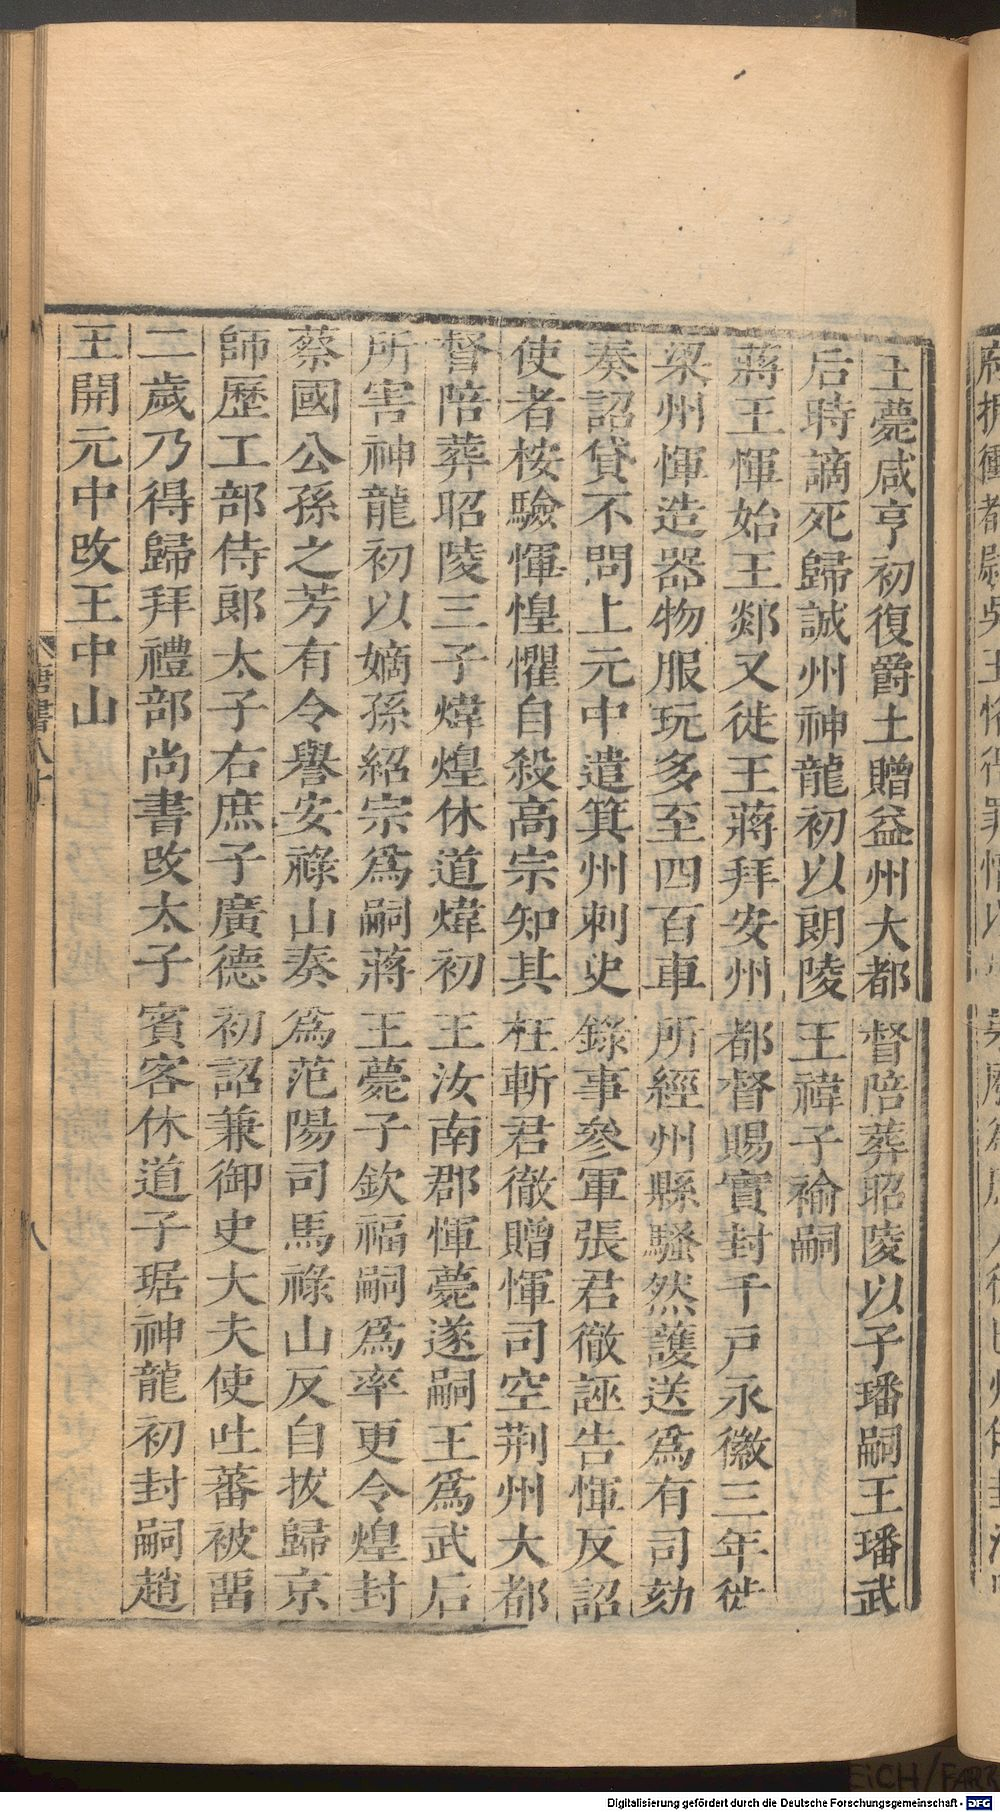 王薨咸亨初復爵土贈益州大都督陪葬昭陵以子璠嗣王璠武
后時謫死歸誠州神龍初以朗陵王禕子褕嗣
蔣王惲始王郯又徙王蔣拜安州都督賜實封千戸永徽三年徙
梁州惲造器物服玩多至四百車所經州縣騷然護送爲有司劾
奏詔貸不問上元中遣箕州刺史錄事參軍張君徹誣告惲反詔
使者桉驗惲惶懼自殺高宗知其枉斬君徹贈惲司空荆州大都
督陪葬昭陵三子煒煌休道煒初王汝南郡惲薨遂嗣王爲武后
所害神龍初以嫡孫紹宗爲嗣蔣王薨子欽福嗣爲率更令煌封
蔡國公孫之芳有令譽安祿山奏爲范陽司馬祿山反自拔歸京
師歷工部侍郎太子右庶子廣德初詔兼御史大夫使吐蕃被畱
二歲乃得歸拜禮部尚書改太子賓客休道子琚神龍初封嗣趙
王開元中改王中山
唐書八十
八
Digitalisierung gefördert durch die Deutsche Forschungsgemeinschaft - DFG